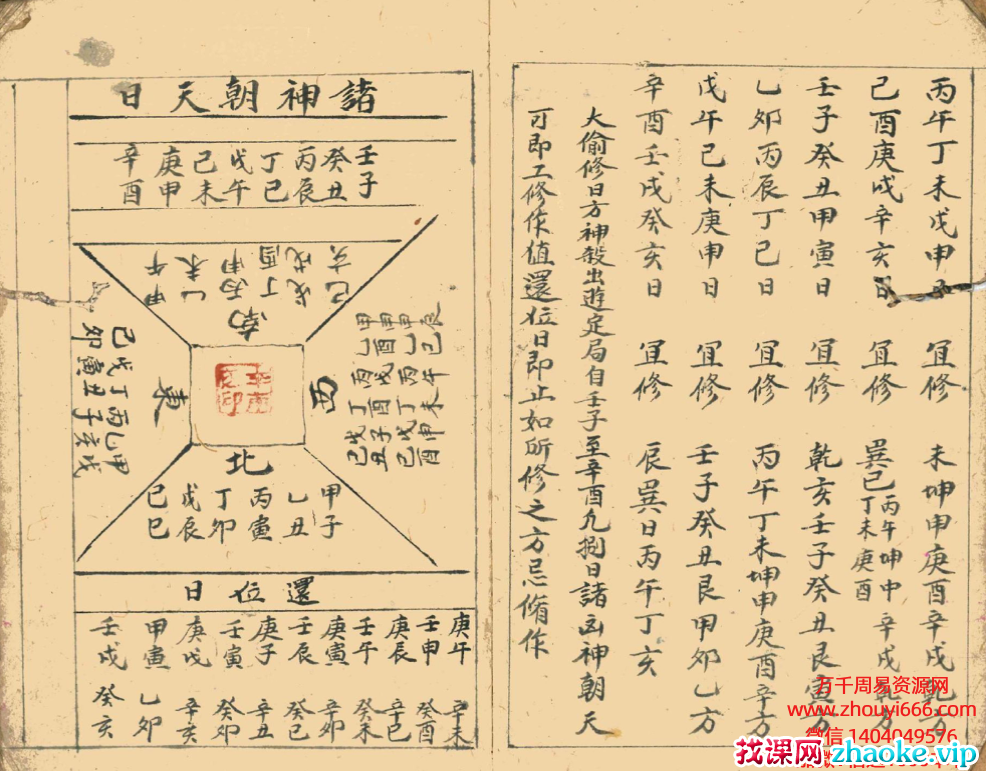 丙午丁未戊申日 宜修 未坤申庚酉辛戌乾方
己酉庚戌辛亥日 宜修 巽巳丙午丁未坤中庚酉辛戌乾方
壬子癸丑甲寅日 宜修 乾亥壬子癸丑艮寅方
乙卯丙辰丁巳日 宜修 丙午丁未坤申庚酉辛方
戊午己未庚申日 宜修 壬子癸丑艮甲卯乙方
辛酉壬戌癸亥日 宜修 辰巽日丙午丁亥
大偷修日方神殺出遊定局自壬子至辛酉凡捌日諸凶神朝天
可即工修作值還位日即止如所修之方忌脩作
諸神朝天日
壬子 癸丑 丙辰 丁巳 戊午 己未 庚申 辛酉
甲午 乙未 丙申 丁酉 戊戌 己亥
南
西
甲辰 乙巳 丙午 丁未 戊申 己酉
東
甲戌 乙亥 丙子 丁丑 戊寅 己卯
北
甲子 乙丑 丙寅 丁卯 戊辰 己巳
還位日
庚午 辛未
壬申 癸酉
庚辰 辛巳
壬午 癸未
庚寅 辛卯
壬辰 癸巳
庚子 辛丑
壬寅 癸卯
庚戌 辛亥
甲寅 乙卯
壬戌 癸亥
万千周易资源网
www.zhouyi666.com
微信 1404049576
找课网zhaoke.vip